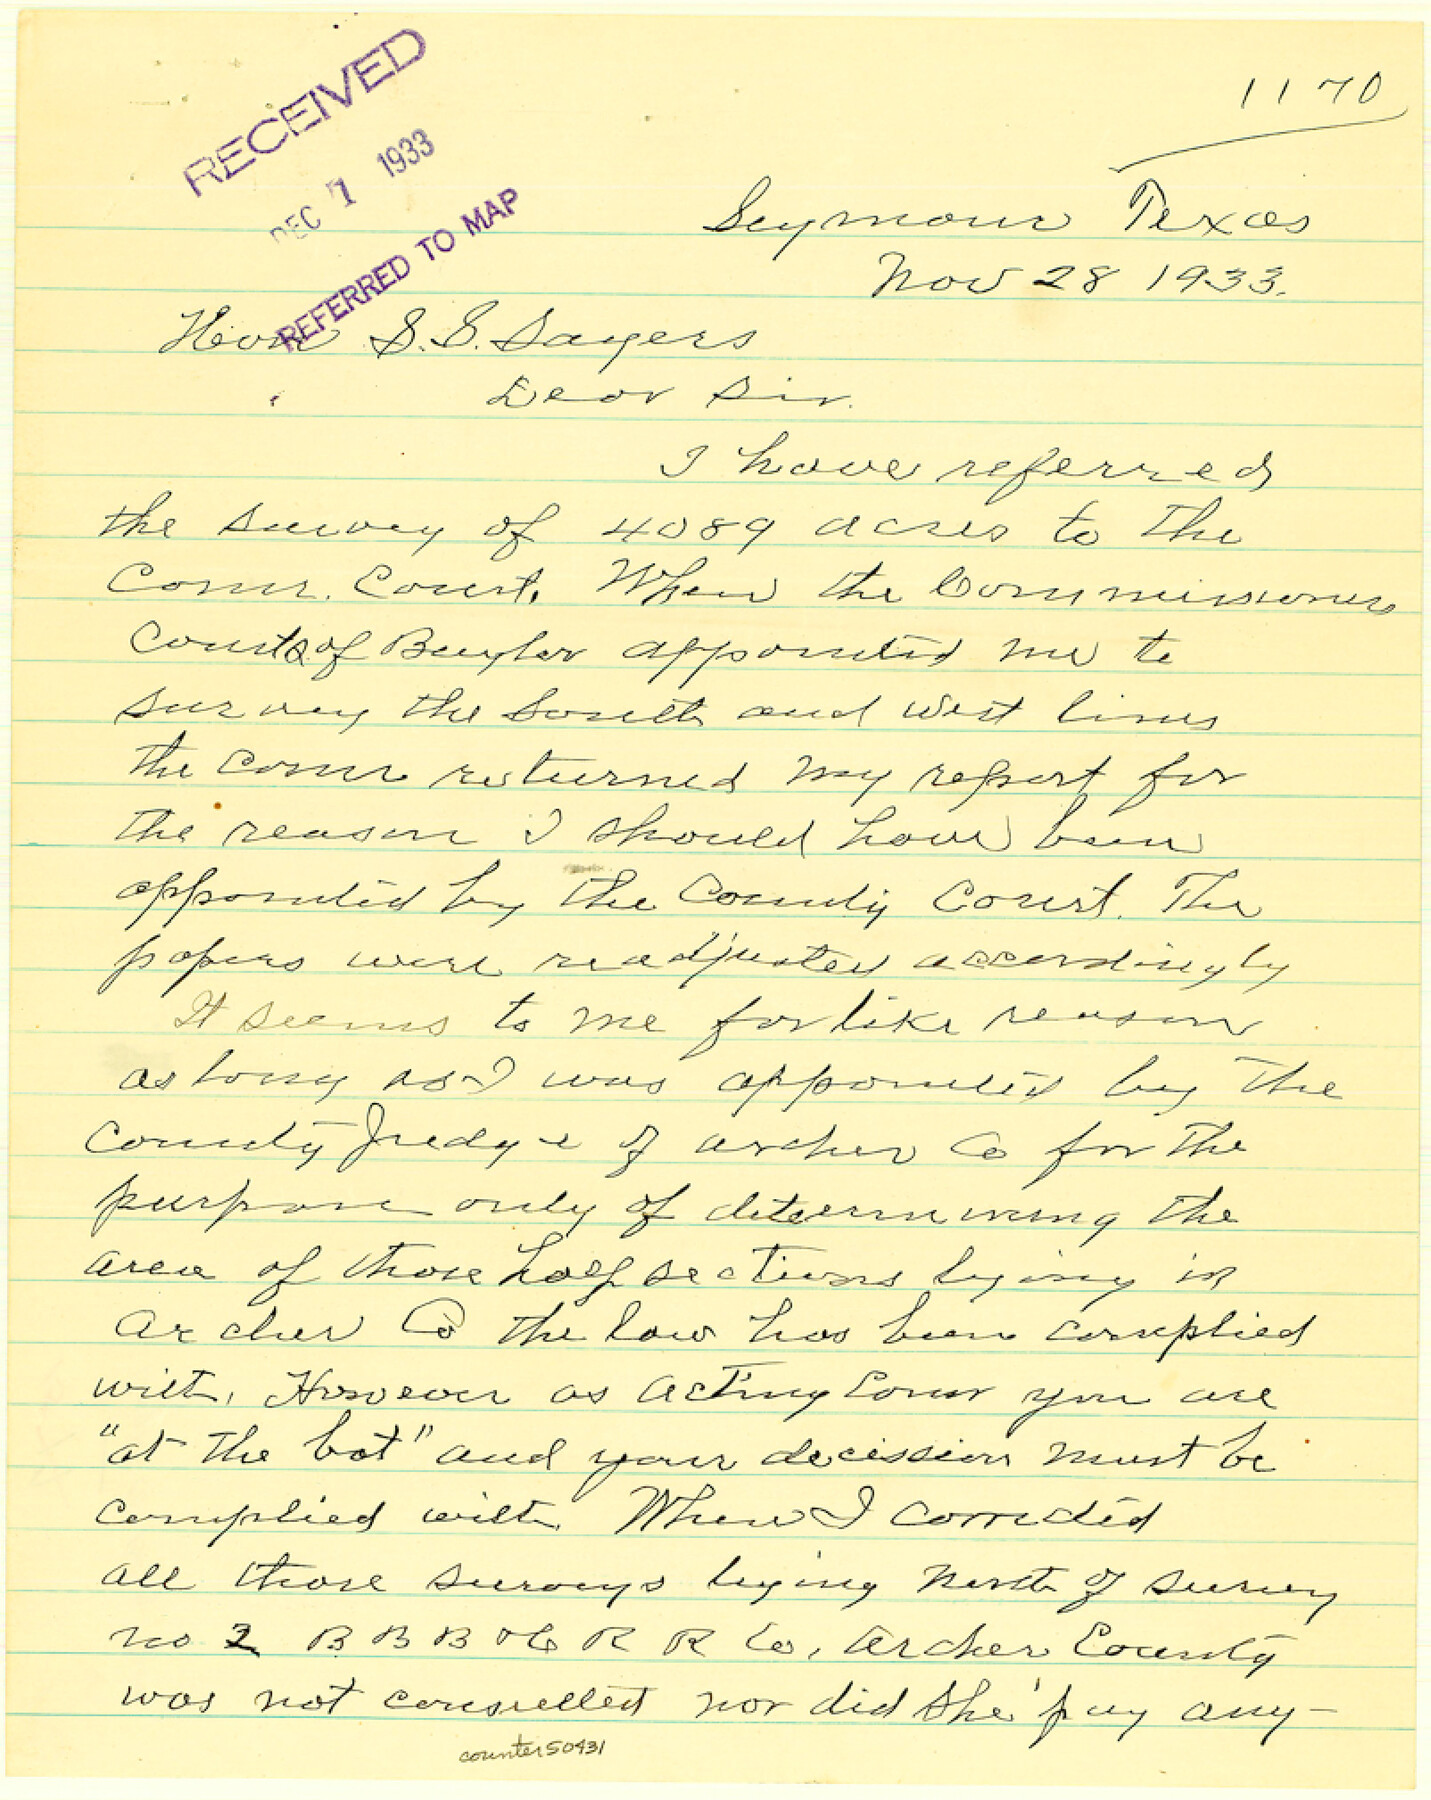 RECEIVED
DEC 1 1933
REFERRED TO MAP
1170
Seymour Texas
Nov 28 1933.
Hon S. S. Sayers
Dear Sir.
I have referred
the survey of 4089 acres to the
Comr. Court. When the Commissioners
Courts of Baylor appointed me to
survey the South and West lines
the comr returned my report for
the reason I should have been
appointed by the County Court. The
papers were readjusted accordingly
It seems to me for like reason
as long as I was appointed by the
County Judge of Archer Co for the
purpose only of determining the
area of those half sections lying in
Archer Co the law has been complied
with. However as Acting Comr you are
"at the bat" and your decission must be
complied with. When I corrected
all those surveys lying North of survey
no 2 B B B & C R R Co, Archer County
was not consulted nor did she pay any-
counter 50431